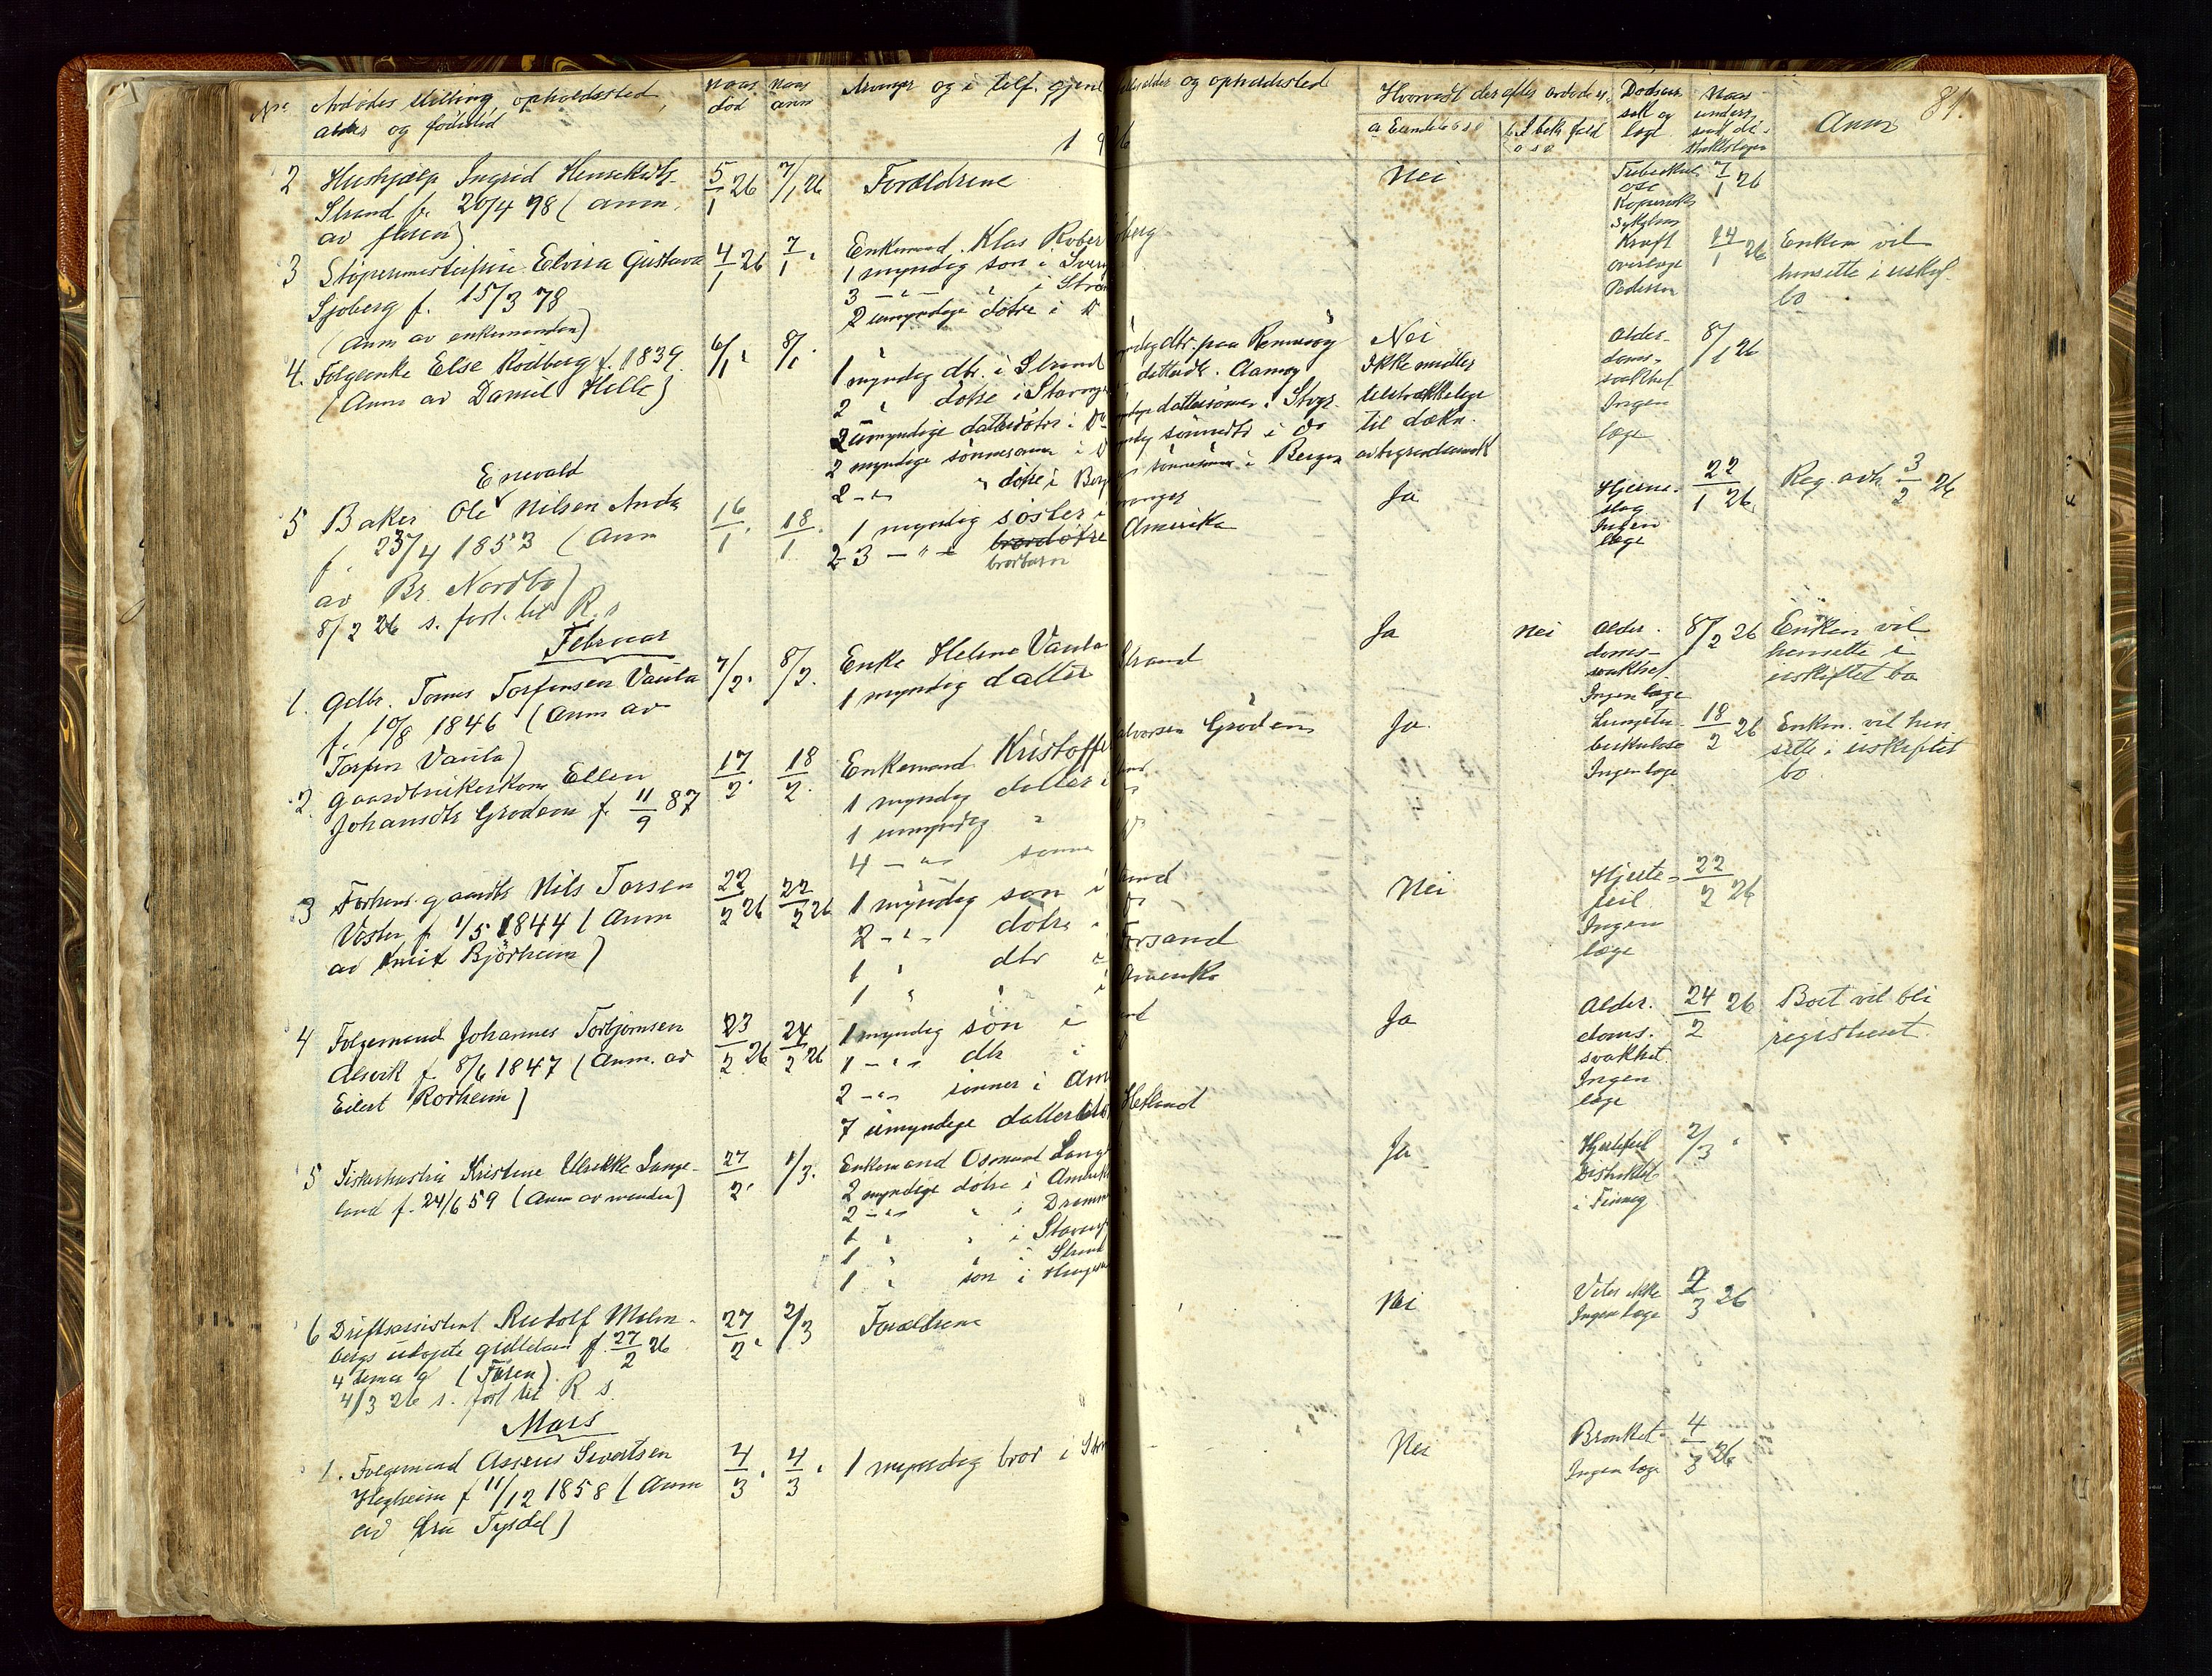 81.
No Avdødes stilling, opholdssted,
alder og fødested
naar
død
naar
anm
Arvinger og i tilf. gjenl
alder og opholdssted
Hvorvidt der efter avdøde er
a Eiendele o s v
b. S
fald
o s v
Dødsaar
sak og
læge
Naar
underr.
sendt
Anm
1926
2 Hushjælp Ingrid
Strand f. 20/4 98 (anm.
av faren)
5/1 26
7/1 26
Forældrene
Nei
Tuberkul
ose
sykehus
7/1 26
3 Støpermesterfrue Elvira Gustava
Sjøberg f. 15/3 78
(Anm av enkemanden)
4/1 26
7/1 "
Enkemand Klas Rober
berg
1 myndig søn i Sver
3 — " — " i Stra
2 umyndige døtre i D
Kræft
overlæge
14/1 26
Enken vil
hensitte i uskif.
bo
4. Følgeenke Elise Rødberg f. 1839.
(Anm av Daniel Helle)
6/1 "
8/1 "
1 myndig dtr. i Strand
myndig dtr. paa Rennesøy
2 " døtre i Stavange
datterdtr. Aamøy
2 umyndige datterdøtre i D
dattersønner i Stvgr.
2 myndige sønnesønner i D
sønnedtr i do
2 — " — " døtre i Berg
sønnesønner i Bergen
Nei
Ikke midler
telstrækkelige
til dækn.
av begravelsesomk
Alder-
doms-
svakhet
Ingen
læge
8/1 26
Enevald
5 Baker Ole Nilsen Anda
f. 23/4 1853 (Anm
av Br. Nordbø)
8/2 26 s. fort. til R. s
16/1 "
18/1 "
1 myndig søster i
vanger
2 3 — " — brordøtre
Amerika
brorbarn
Ja
Hjerne-
slag
Ingen
læge
22/1 26
Reg. avh 3/2 26
Februar
1. Gdbr. Tomas Torfinsen Vaula
f. 10/8 1846 (Anm av
Torfin Vaula)
7/2 "
8/2 "
Enke Helene Vaula
Strand
1 myndig datter
Ja
Nei
Alder-
doms-
svakhet.
Ingen læge
8/2 26
Enken vil
hensitte i
uskiftet bo
2 Gaardbrukerkone Ellen
Johansdtr Grødem f. 11/9 87
17/2 "
18/2 "
Enkemand Kristoffe
alvorsen Grødem
1 myndig datter i
1 umyndig "
4 — " — sønne
Ja
Lungetu-
berkulose
Ingen læge
18/2 26
Enkem. vil hen
sitte i uskiftet
bo
3 Forhenv. gaardbr Nils Torsen
f 1/5 1844 (Anm
av Bjørheim)
22/2 26
22/2 26
1 myndig søn i
2 — " — døtre
1 " dtr i
Forsand
1 " " i
Amerika
Nei
Hjerte-
feil
Ingen
læge
22/2 26
4 Følgemand Johannes Torbjørnsen
Alsvik f. 8/6 1847 (Anm. av
Eilert Rorheim)
23/2 26
24/2 26
1 myndig søn i
1 — " — dtr i
2 — " — sønner i Am
7 umyndige datter
Hetland
Ja
Alder-
doms-
svakhet
Ingen
læge
24/2 26
Boet vil bli
registrert
5 Fiskerhustru Kristine Ulrikke Lange-
land f. 24/6 59 (Anm av manden)
27/2 "
1/3 "
Enkemand Osmund Lang
2 myndige døtre i Amerik
2 — " — " i Dramm
1 " " i Stavang
1 " " i Strand
1 " søn i Hauge
Ja
Hjertefeil
Distriktsl.
2/3 "
6 Driftsassistent Rudolf Malm-
bergs udøpte guttebarn f. 27/2 26
4 timer g (Faren)
4/3 26 s. fort til R s.
27/2 "
2/3
Forældrene
Nei
Vites ikke
Ingen læge
2/3 26
Mars
1. Følgemand Asseus Sivertsen
f 11/12 1858 (Anm
av Tysdal)
4/3 "
4/3 "
1 myndig bror i Str
Nei
Bronkit
Ingen læge
4/3 26